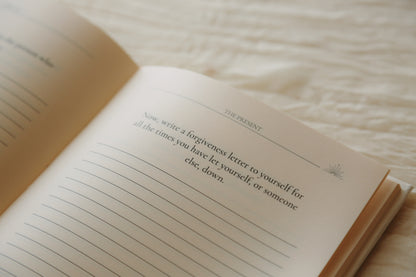 THE PRESENT
Now, write a forgiveness letter to yourself for
all the times you have let yourself, or someone
else, down.